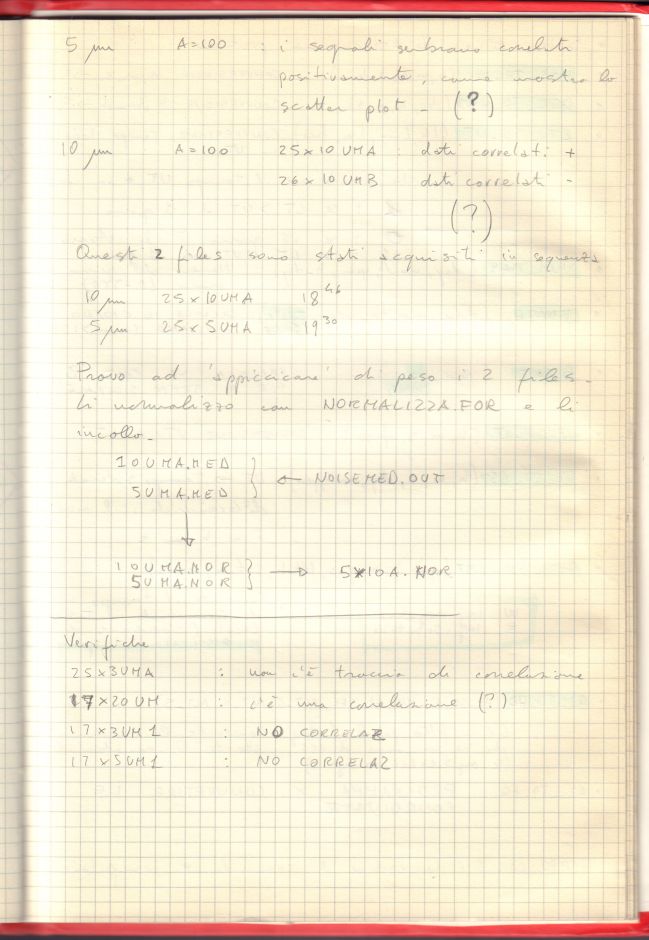 5 µm A=100 : i segnali sembrano correlati
positivamente, come mostra lo
scatter plot - (?)
10 µm A=100 25x10UMA : dati correlati +
26x10UMB dati correlati -
(?)
Questi 2 files sono stati acquisiti in sequenza
10 µm 25x10UMA 18 46
5 µm 25x5UMA 19 30
Provo ad 'appiccicare' di peso i 2 files -
Li normalizzo con NORMALIZZA.FOR e li
incollo.
10UMA.MED } ← NOISEMED.OUT
5UMA.MED
↓
10UMA.NOR } → 5x10A.NOR
5UMA.NOR
Verifiche
25x3UMA : non c'è traccia di correlazione
17x20UM : c'è una correlazione (?)
17x3UM1 : NO CORRELAZ
17x5UM1 : NO CORRELAZ